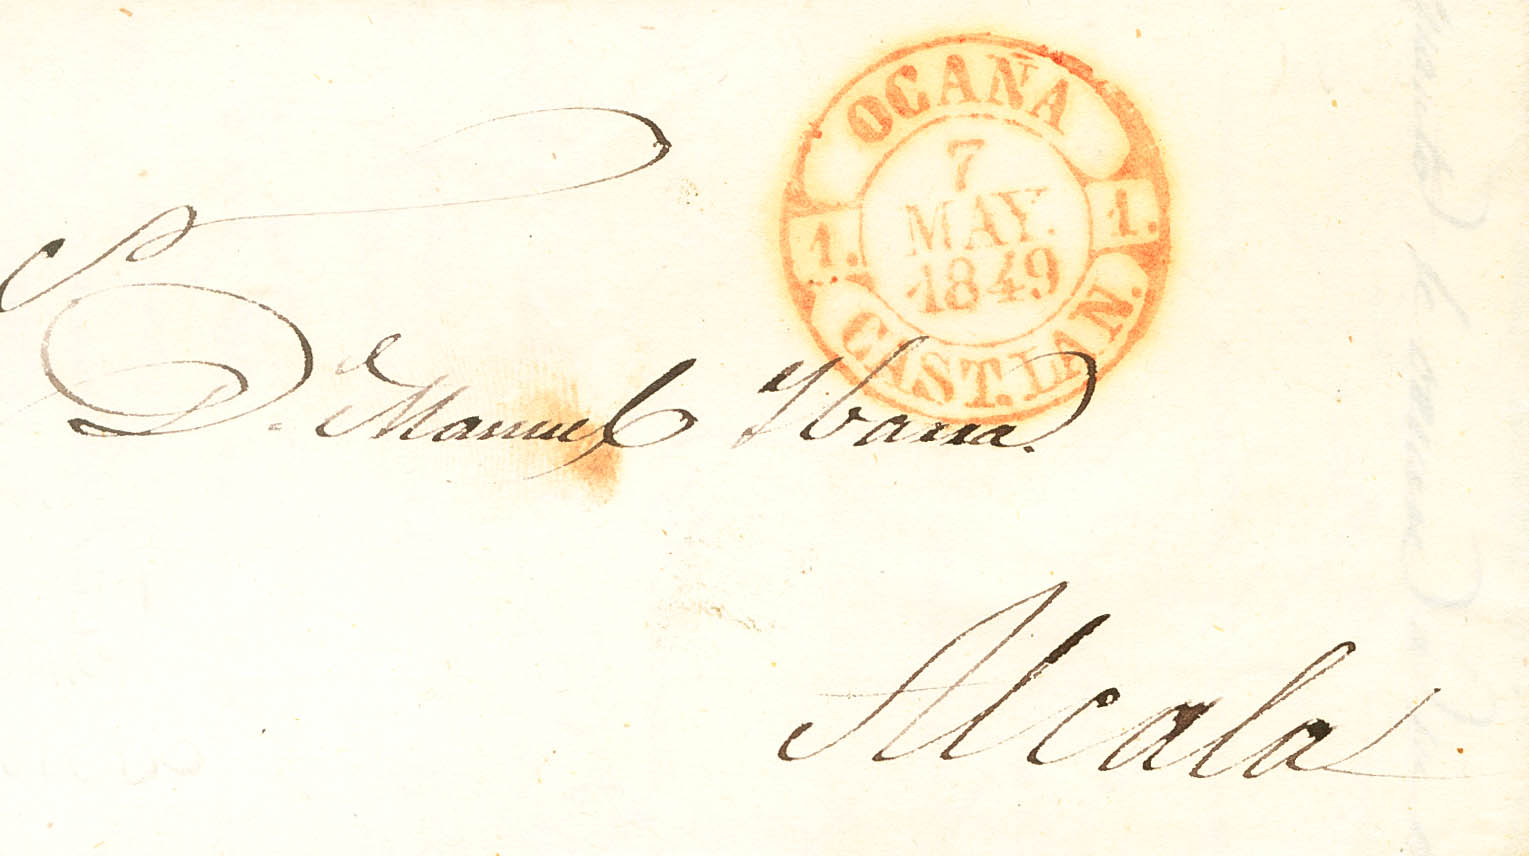 OCAÑA
7
MAY.
1849
1. 1.
CAST. LA N.
S
D. Manuel Ybarra.
Alcala